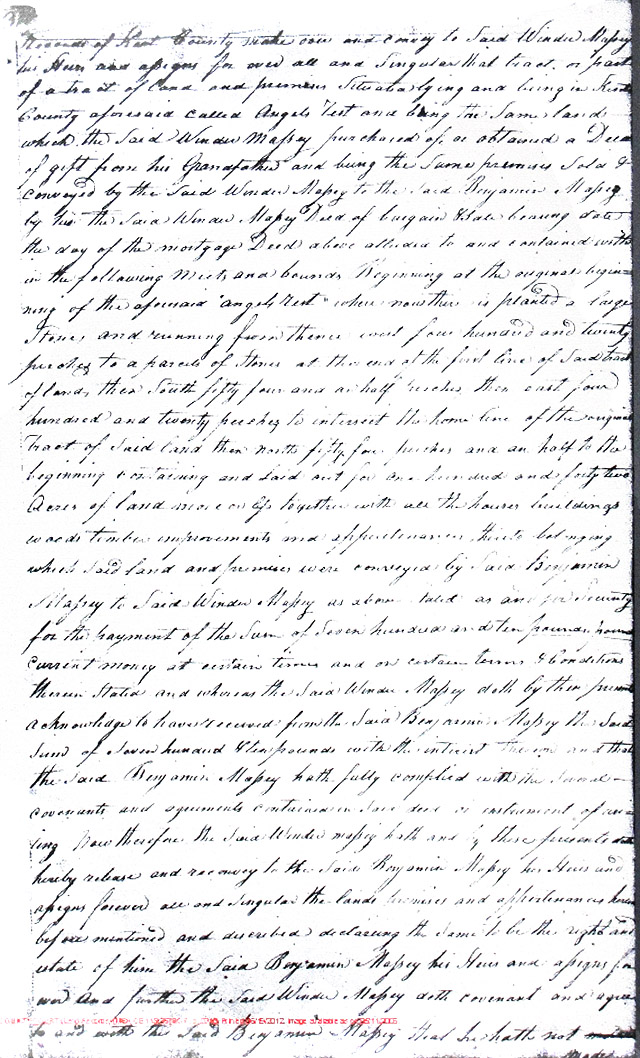 Records of Kent County make over and convey to Said Winder Massey
his Heirs and assigns for ever all and Singular that tract or part
of a tract of land and premises Situate lying and being in Kent
County aforesaid called Angels Rest and being the Same land
which the Said Winder Massey purchased of, or obtained a Deed
of gift from his Grandfather and being the Same premises Sold &
conveyed by the Said Winder Massey to the Said Benjamin Massey
by his the Said Winder Massey Deed of bargain & Sale bearing date
the day of the mortgage Deed above alluded to and contained with
in the following Meets and bounds Beginning at the original begin
ning of the aforesaid "angels Rest" where now there is planted a large
Stones and running from thence west four hundred and twenty
perches to a parcel of Stones at the end of the first line of Said tract
of land, then South fifty four and an half perches then east four
hundred and twenty perches to intersect the home line of the original
tract of Said land then north fifty four perches and an half to the
beginning containing and laid out for one hundred and forty two
Acres of land more or less together with all the houses buildings
woods timber improvements and appurtenances thereto belonging
which Said land and premises were conveyed by Said Benjamin
Massey to Said Winder Massey as above stated as and for Security
for the payment of the Sum of Seven hundred and ten pounds
current money at certain times and on certain terms & Conditions
therein Stated and whereas the Said Winder Massey doth by these presents
acknowledge to have received from the Said Benjamin Massey the Said
Sum of Seven hundred & ten pounds with the interest thereon and that
the Said Benjamin Massey hath fully complied with the Several
covenants and agreements contained in Said deed or instrument of wri
ting Now therefore the Said Winder Massey hath and by these presents doth
hereby release and reconvey to the Said Benjamin Massey his Heirs and
assigns forever all and Singular the lands premises and appurtenances herein
before mentioned and described declaring the Same to be the right and
estate of him the Said Benjamin Massey his Heirs and assigns for
ever And further the Said Winder Massey doth covenant and agree
to and with the Said Benjamin Massey that he hath not